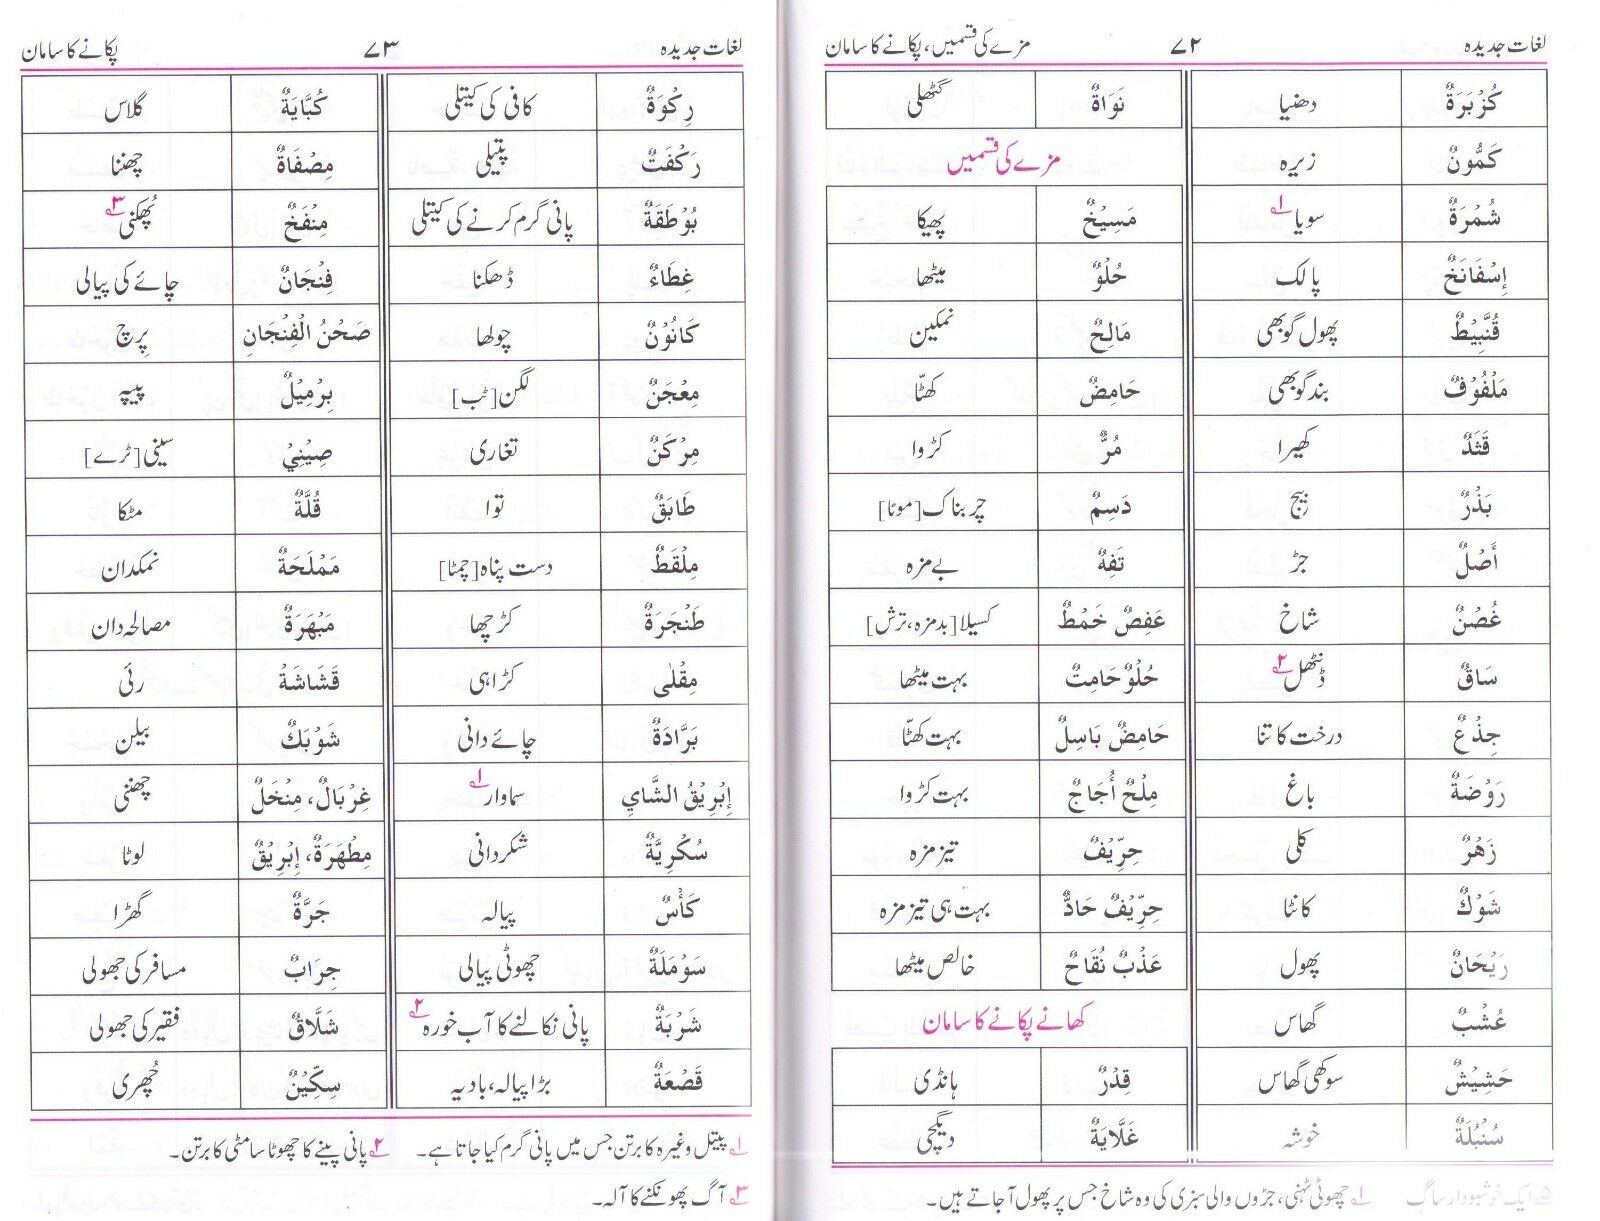 لغات جدیدہ ۷۲ مزے کی قسمیں، پکانے کا سامان
كُزْبَرَةٌ دھنیا
كَمُّونٌ زیرہ
شُمْرَةٌ سویا ۱ے
إِسْفَانَخٌ پالک
قُنَّبِيْطٌ پھول گوبھی
مَلْفُوْفٌ بند گوبھی
قَثَدٌ کھیرا
بَذْرٌ بیج
أَصْلٌ جڑ
غُصْنٌ شاخ
سَاقٌ ڈنٹھل ۲ے
جِذْعٌ درخت کا تنا
رَوْضَةٌ باغ
زَهْرٌ کلی
شَوْكٌ کانٹا
رَيْحَانٌ پھول
عُشْبٌ گھاس
حَشِيْشٌ سوکھی گھاس
سُنْبُلَةٌ خوشہ
نَوَاةٌ گٹھلی
مزے کی قسمیں
مَسِيْخٌ پھیکا
حُلْوٌ میٹھا
مَالِحٌ نمکین
حَامِضٌ کھٹّا
مُرٌّ کڑوا
دَسِمٌ چربناک [موٹا]
تَفِهٌ بے مزہ
عَفِصٌ خَمْطٌ کسیلا [بدمزہ، ترش]
حُلْوٌ حَامِتٌ بہت میٹھا
حَامِضٌ بَاسِلٌ بہت کھٹّا
مِلْحٌ أُجَاجٌ بہت کڑوا
حِرِّيْفٌ تیز مزہ
حِرِّيْفٌ حَادٌّ بہت ہی تیز مزہ
عَذْبٌ نُقَاحٌ خالص میٹھا
کھانے پکانے کا سامان
قِدْرٌ ہانڈی
غَلَّايَةٌ دیگچی
ایک خوشبودار ساگ ۱ے چھوٹی ٹہنی، جڑوں والی سبزی کی وہ شاخ جس پر پھول آجاتے ہیں۔
لغات جدیدہ ۷۳ پکانے کا سامان
رِكْوَةٌ کافی کی کیتلی
رَكْفَتٌ پتیلی
بُوْطَقَةٌ پانی گرم کرنے کی کیتلی
غِطَاءٌ ڈھکنا
كَانُوْنٌ چولھا
مِعْجَنٌ لگن [ٹب]
مِرْكَنٌ تغاری
طَابَقٌ توا
مِلْقَطٌ دست پناہ [چمٹا]
طَنْجَرَةٌ کڑچھا
مِقْلٰى کڑاہی
بَرَّادَةٌ چائے دانی
إِبْرِيْقُ الشَّايِ سماوار ۱ے
سُكْرِيَّةٌ شکر دانی
كَأْسٌ پیالہ
سَوْمَلَةٌ چھوٹی پیالی
شَرْبَةٌ پانی نکالنے کا آب خورہ ۲ے
قَصْعَةٌ بڑا پیالہ، بادیہ
كُبَّايَةٌ گلاس
مِصْفَاةٌ چھننا
مِنْفَخٌ پُھکنی ۳ے
فِنْجَانٌ چائے کی پیالی
صَحْنُ الْفِنْجَانِ پِرچ
بِرْمِيْلٌ پیپہ
صِيْنِيْ سینی [ٹرے]
قُلَّةٌ مٹکا
مَمْلَحَةٌ نمکدان
مَبْهَرَةٌ مصالحہ دان
قَشَاشَةٌ رئی
شَوْبَكٌ بیلن
غِرْبَالٌ، مِنْخَلٌ چھنی
مِطْهَرَةٌ، إِبْرِيْقٌ لوٹا
جَرَّةٌ گھڑا
جِرَابٌ مسافر کی جھولی
شَلَّاقٌ فقیر کی جھولی
سِكِّيْنٌ چُھری
۱ے پیتل وغیرہ کا برتن جس میں پانی گرم کیا جاتا ہے۔ ۲ے پانی پینے کا چھوٹا سا مٹی کا برتن۔
۳ے آگ پھونکنے کا آلہ۔